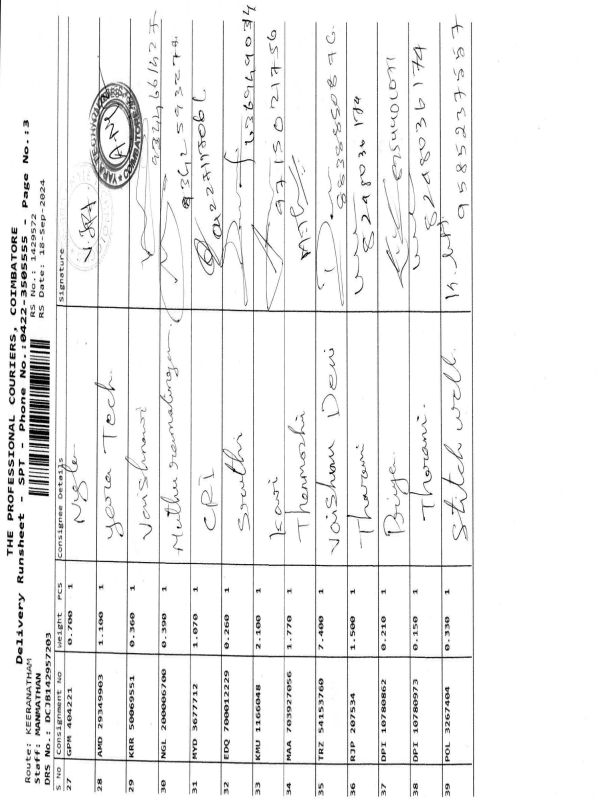 THE PROFESSIONAL COURIERS, COIMBATORE
Delivery Runsheet - SPT - Phone No.:0422-3505555 - Page No.:3
Route: KEERANATHAM
Staff: MANMATHAN
DRS No.: DCJB142957203
RS No.: 1429572
RS Date: 18-Sep-2024
S No Consignment No Weight PCS Consignee Details Signature
27 GPM 404221 0.700 1
28 AMD 29349903 1.100 1 Yara Tech
29 KRR 50069551 0.360 1 Vaishnavi 9344661427
30 NGL 200006700 0.390 1 Muthuramalingam 9342593273
31 MYD 3677712 1.070 1 CRI
32 EDQ 700012229 0.260 1 Sruthi
33 KMU 1166048 2.100 1 Kavi 9715021756
34 MAA 703927056 1.770 1 Thenmozhi
35 TRZ 54153760 7.400 1 Vaishnav Devi 8838850896
36 RJP 207534 1.500 1 Tharani 8248036174
37 DPI 10780862 0.210 1 Priya
38 DPI 10780973 0.150 1 Tharani 8248036174
39 POL 3267404 0.330 1 Stitch well 9585237557